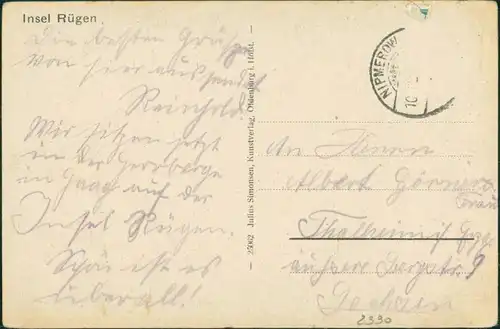 Insel Rügen
Die besten Grüße
von hier aus sendet
Reinhold.
Wir sitzen jetzt
in der Herberge
in auf der
Insel Rügen.
Schön ist es
überall!
25062 Julius Simonsen, Kunstverlag, Oldenburg i. Holst.
NIPMEROW
10
An Herrn
Albert
Thalheim i/ Erzg.
äußere Bergstr. 9
Sachsen
2330